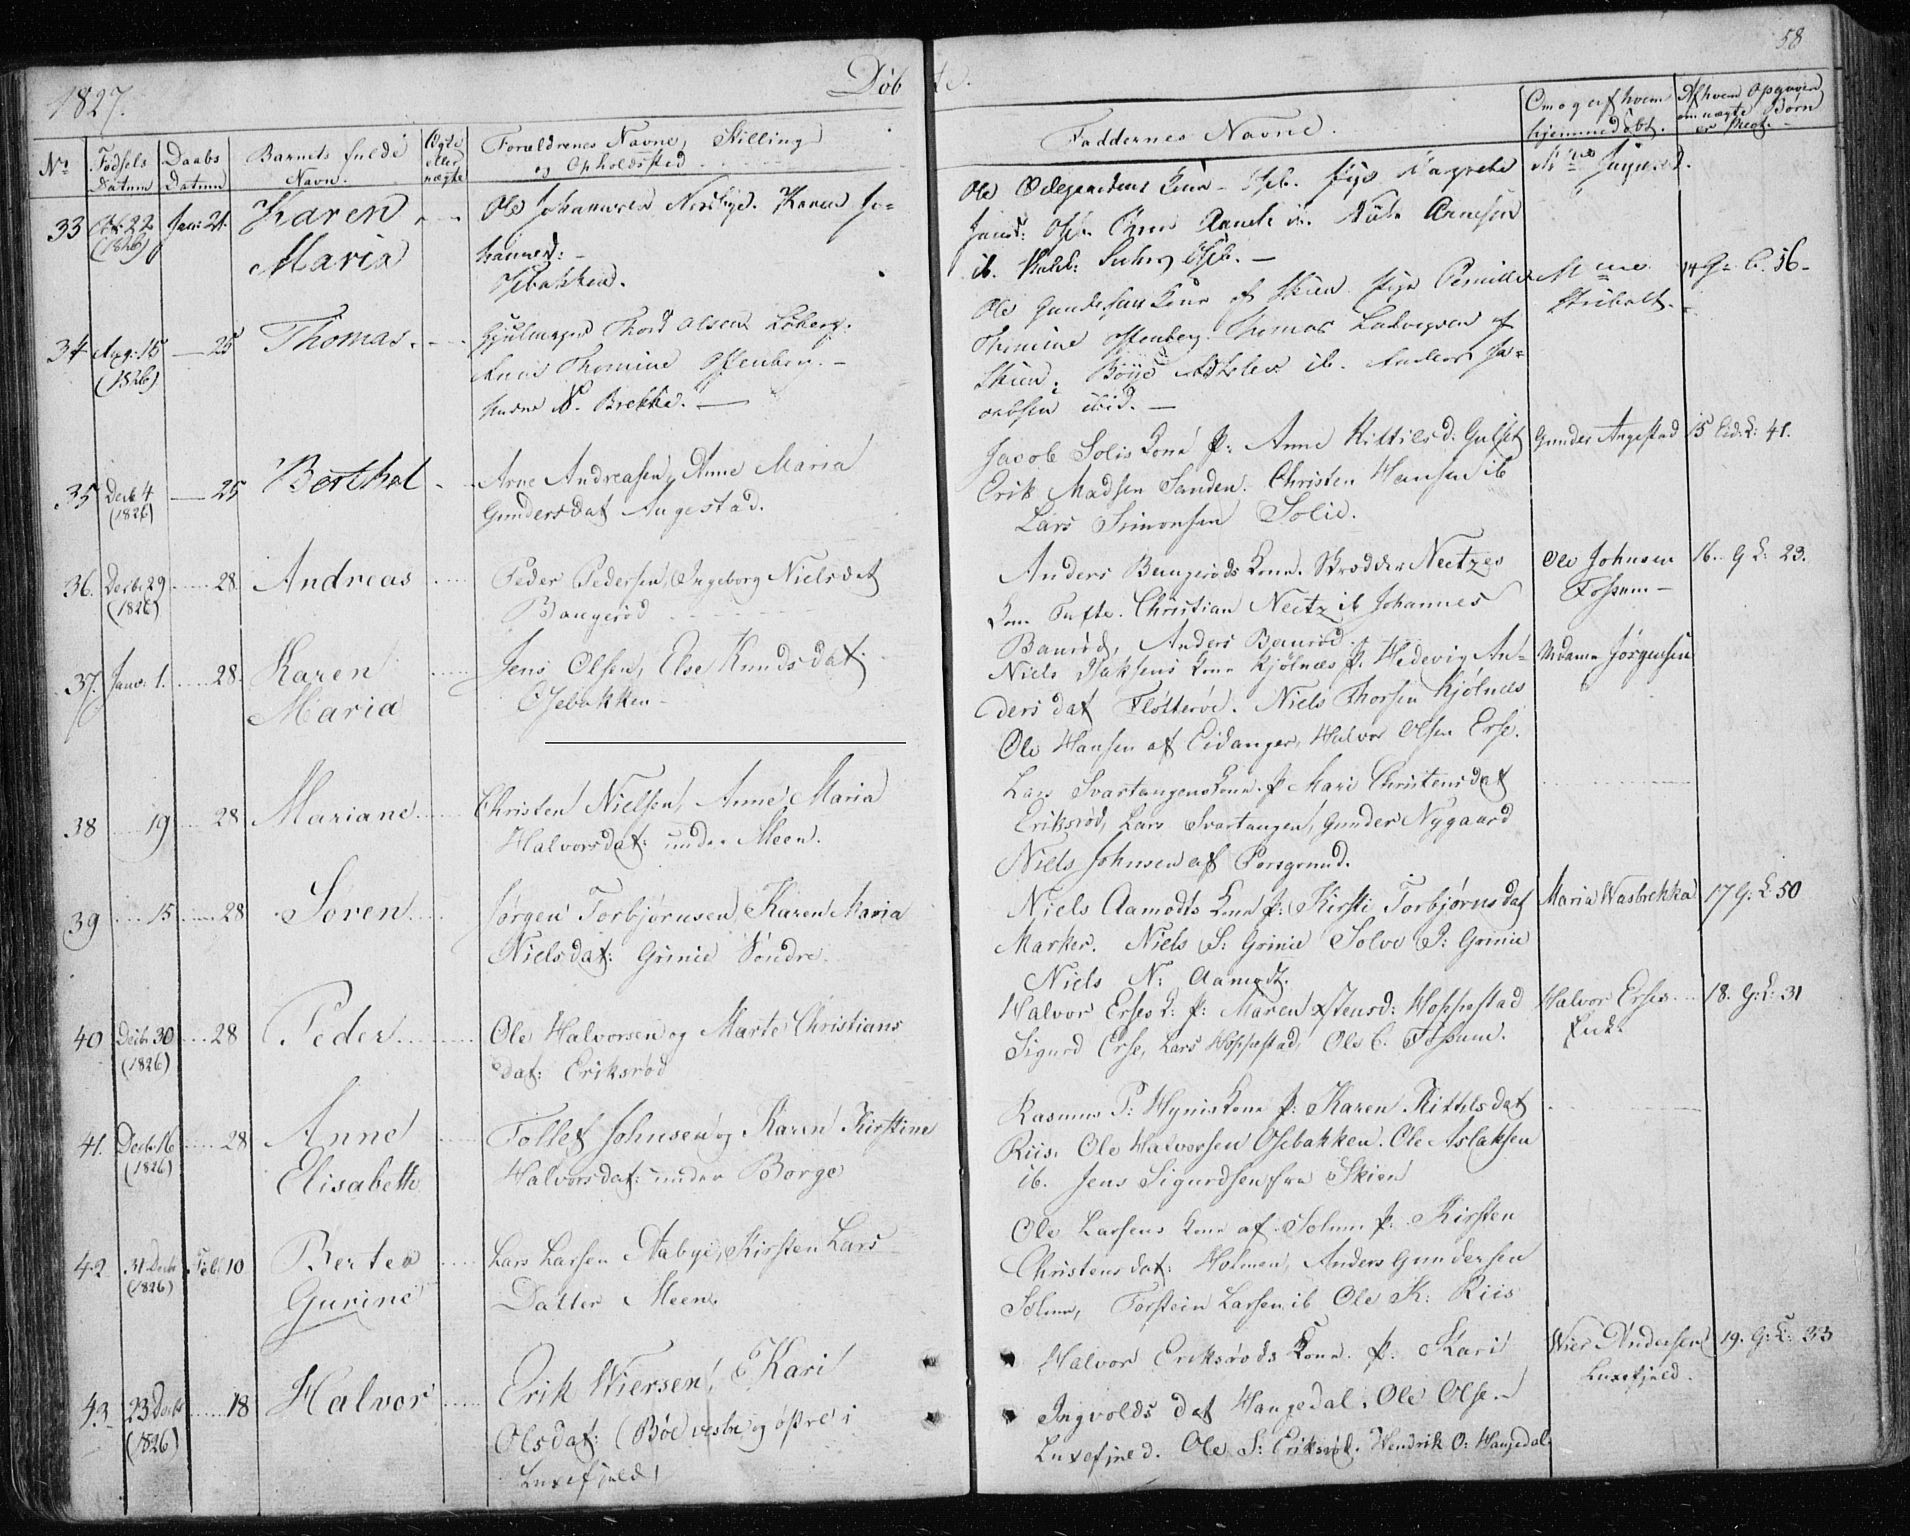 1827.
Døbte.
58
No
Fødsels Datum
Daabs Datum
Barnets fulde Navn.
Ægte eller uægte
Forældrenes Navne, Stilling og Opholdsted
Faddernes Navne.
Om og af hvem hjemmedøbt.
Af hvem Opgaven om uægte Børn er skeet.
33 Octb: 22 (1826) Jan: 21. Karen Maria
Ole Johannesen
Karen Jo=
hannesd:
Osebakken.
Ole Ødegaardens Kone
ib.
34 Aug: 15 (1826) — 25 Thomas.
Thord Olsen Løberg.
Thomine Ostenberg. —
N. Brekke. —
Ole Gundersens Kone af Skien. Pige Pernille
Thomine Ostenberg. Thomas Ludvigsen af
Skien. ib. Ja=
cobsen ibid. —
14 G. L. 56 —
35 Decb 4 (1826) — 25 Berthel
Arne Andreasen, Anne Maria
Gundersdat Augestad.
Jacob Solis Kone p: Anne Kittilsd. Gulset
Erik Madsen Sanden. Christen Hansen ib
Lars Simonsen Solie.
Gunder Augestad
15 Eid. L: 41.
36. Decbr 29 (1826) 28 Andreas
Peder Pedersen, Ingeborg Nielsdat
Baugerød
Anders Baugerøds Kone. Skrædder Neetzes
Kone Tufte. Christian Neetz ib Johannes
Baurød, Anders Baurød.
Ole Johnsen
Fossum —
16. G L: 23.
37. Janv: 1. 28. Karen Maria
Jens Olsen, Else Knudsdat.
Osebakken —
Niels Isaksens Kone Kjølnæs p. Hedevig An=
dersdat Fløtterøe. Niels Thorsen Kjølnæs
Ole Hansen af Eidanger, Halvor Olsen Erse.
Madame Jørgensen
38 19 28 Mariane
Christen Nielsen, Anne Maria
Halvorsdat: under Meen.
Lars Svartangens Kone. p Mari Christensdat
Eriksrød, Lars Svartangen, Gunder Nygaard
Niels Johnsen af Porsgrund.
39 15 28 Søren
Jørgen Torbjørnsen, Karen Maria
Nielsdat: Grinie Søndre.
Niels Aamodts Kone p: Kirsti Torbjørnsdat
Marker. Niels S: Grinie Solve P: Grinie
Niels N: Aamodt.
Maria Wasbekka
17 G: L 50
40 Decbr 30 (1826) 28 Peder
Ole Halvorsen og Marte Christians
dat: Eriksrød
Halvor Erses K: p: Maren Xstensd: Hoppestad
Sigurd Erse, Lars Hoppestad, Ole C. Fossum.
Halvor Erses
Enke
18. G: L: 31
41. Decbr 16 (1826) 28 Anne Elisabeth
Tollef Johnsen og Karen Kirstine
Halvorsdat: under Borge
Rasmus P: Hynis Kone p: Karen Kittilsdat
Riis. Ole Halvorsen Osebakken. Ole Aslaksen
ib. Jens Sigurdsen fra Skien
42 31 Decbr (1826) Feb: 10 Berte Gurine
Lars Larsen Aabye, Kirsten Lars
Datter Meen.
Ole Larsens Kone af Solum p: Kirsten
Christensdat: Holmen, Anders Gundersen
Solum, Torstein Larsen ib Ole K: Riis
43 23 Decbr (1826) 18 Halvor
Erik Wiersen, Kari
Olsdat: (Böe vestre og östre i
Luxefjeld)
Halvor Eriksrøds Kone. p. Kari
Ingvoldsdat Haugedal. Ole Olse.
Luxefjeld. Ole S: Eriksrød. Hendrik O: Haugedal.
Wier Andersen
Luxefjeld.
19. G: L: 33